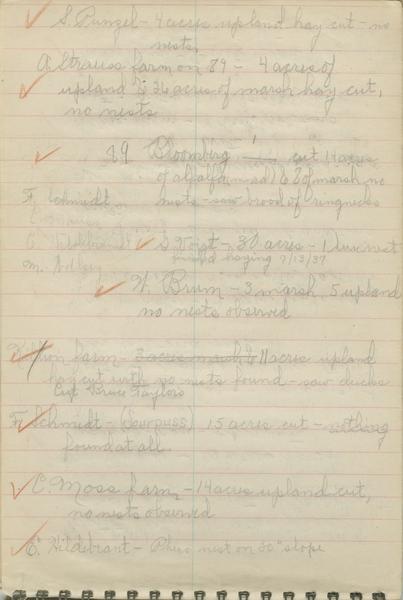 S. Punzel - 4 acres upland hay cut - no
nests.
A. Strauss farm on 89 - 4 acres of
upland & 26 acres of marsh hay cut,
no nests
89 Bloomberg cut 14 acres
of alfalfa and 68 of marsh no
F. Schmidt nests - saw brood of ringnecks
S. Voigt - 30 acres - 1 nest
haying 7/13/37
W. Brum - 3 marsh 5 upland
no nests observed
farm - 3 acres marsh & 11 acres upland
hay cut with no nests found - saw ducks
Cut Bruce Taylors
F. Schmidt - (Sourpuss) 15 acres cut - nothing
found at all.
C. Moss farm - 14 acres upland cut,
no nests observed
C. Hildebrant - Pheas nest on 30° slope